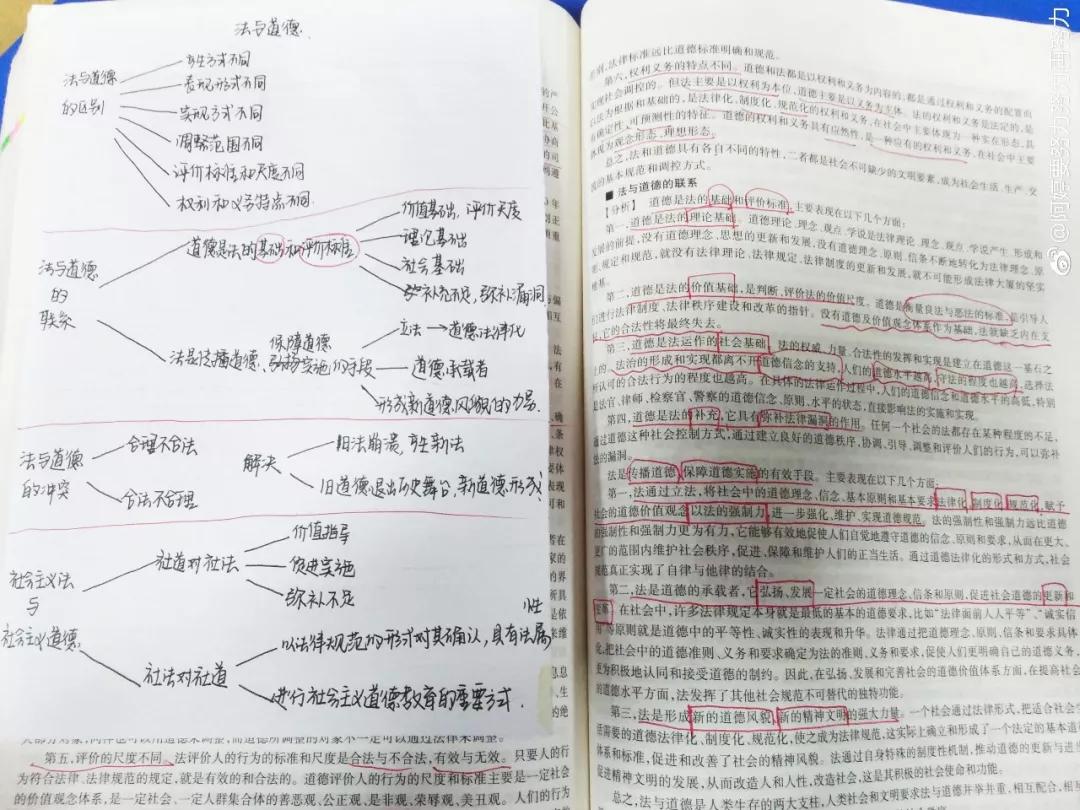 法与道德
法与道德
的区别
产生方式不同
表现形式不同
实现方式不同
调整范围不同
评价标准和尺度不同
权利和义务特点不同
法与道德
的
联系
道德是法的基础和评价标准
价值基础,评价尺度
理论基础
社会基础
弥补不足,弥补漏洞
法是传播道德、保障道德、弘扬实施的手段
立法→道德法律化
道德承载者
形成新道德风貌的力量
法与道德
的冲突
合理不合法
合法不合理
解决
旧法崩溃,产生新法
旧道德退出历史舞台,新道德形成
社会主义法
与
社会主义道德
社道对社法
价值指导
促进实施
弥补不足
社法对社道
以法律规范的形式对其确认,具有法属性
进行社会主义道德教育的重要方式.
第五,评价的尺度不同。法评价人的行为的标准和尺度是合法与不合法,有效与无效。只要人的行
为符合法律、法律规范的规定,就是有效的和合法的。道德评价人的行为的尺度和标准主要是一定社会
的价值观念体系,是一定社会、一定人群集合体的善恶观、公正观、是非观、荣辱观、美丑观。人们的行为
别,法律标准远比道德标准明确和规范。
第六,权利义务的特点不同。道德和法都是以权利和义务为内容的,都是通过权利和义务的配置而
实现社会调控的。但法主要是以权利为本位,道德主要是以义务为主体。法的权利和义务是法定的,是
以法为根据和基础的,是法律化、制度化、规范化的权利和义务,在社会中主要体现为一种实在形态,具
有确定性、可预测性的特征。道德的权利和义务具有应然性,是一种应有的权利和义务,在社会中主要
体现为观念形态、理想形态。
总之,法和道德具有各自不同的特性,二者都是社会不可缺少的文明要素,成为社会生活、生产、交
往的基本规范和调控方式。
■ 法与道德的联系
【分析】 道德是法的基础和评价标准,主要表现在以下几个方面:
第一,道德是法的理论基础。道德理论、理念、观点、学说是法律理论、理念、观点、学说产生、形成和
发展的前提,没有道德理念、思想的更新和发展,没有道德理念、原则、信条不断地转化为法律理念、原
则、规定和规范,就没有法律理论、法律规定、法律制度的更新和发展,就不可能形成法律大厦的坚实
地基。
第二,道德是法的价值基础,是判断、评价法的价值尺度。道德是衡量良法与恶法的标准,是引导人
们进行法律制度、法律秩序建设和改革的指针。没有道德及价值观念体系作为基础,法就缺乏内在支
持,它的合法性将最终失去。
第三,道德是法运作的社会基础。法的权威、力量、合法性的发挥和实现是建立在道德这一基石之
上的。法治的形成和实现都离不开道德信念的支持,人们的道德水平越高,守法的程度也越高,选择法
所认可的合法行为的程度也越高。在具体的法律运作过程中,人们的道德信念和道德水平的高低,特别
是法官、律师、检察官、警察的道德信念、原则、水平的状态,直接影响法的实施和实现。
第四,道德是法的补充,它具有弥补法律漏洞的作用。任何一个社会的法都存在某种程度的不足,
通过道德这种社会控制方式,通过建立良好的道德秩序,协调、引导、调整和评价人们的行为,可以弥补
法的漏洞。
法是传播道德、保障道德实施的有效手段。主要表现在以下几个方面:
第一,法通过立法,将社会中的道德理念、信念、基本原则和基本要求法律化、制度化、规范化,赋予
社会的道德价值观念以法的强制力,进一步强化、维护、实现道德规范。法的强制性和强制力远比道德
的强制性和强制力更为有力,它能够有效地促使人们自觉地遵守道德的信念、原则和要求,从而在更大、
更广的范围内维护社会秩序,促进、保障和维护人们的正当生活。通过道德法律化的形式和方式,社会
规范真正实现了自律与他律的结合。
第二,法是道德的承载者,它弘扬、发展一定社会的道德理念、信条和原则,促进社会道德的更新和
变革。在社会中,许多法律规定本身就是最低的基本的道德要求,比如“法律面前人人平等”、“诚实信
用”等原则就是道德中的平等性、诚实性的表现和升华。法律通过把道德理念、原则、信条和要求具体
化,把社会中的道德准则、义务和要求确定为法的准则、义务和要求,促使人们更明确自己的道德义务,
更为积极地认同和接受道德的制约。因此,在弘扬、发展和完善社会的道德价值体系方面,在提高社会
的道德水平方面,法发挥了其他社会规范不可替代的独特功能。
第三,法是形成新的道德风貌、新的精神文明的强大力量。一个社会通过法律形式,把适合社会生
活需要的道德法律化、制度化、规范化,使之成为法律规范,这实际上确立和形成了一个法定的基本道
体系和标准,促进和改善了社会的精神风貌。法通过自身特殊的制度性机制,推动道德的更新与进
促进精神文明的发展,从而改造人和人性,改造社会,这是其积极的社会使命和功能。
总之,法与道德是人类生存的两大支柱,人类社会和文明要求法与道德并举并重,相互配合,相互